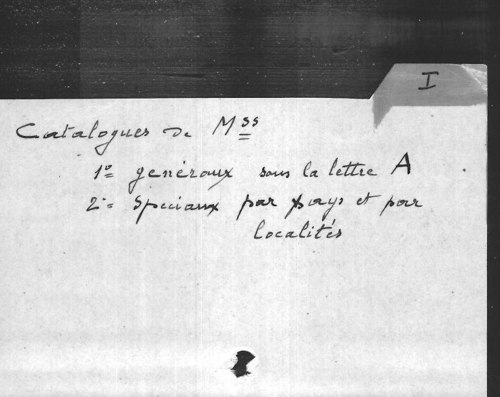 I
Catalogues de Mss
1º généraux sous la lettre A
2º spéciaux par pays et par
localités